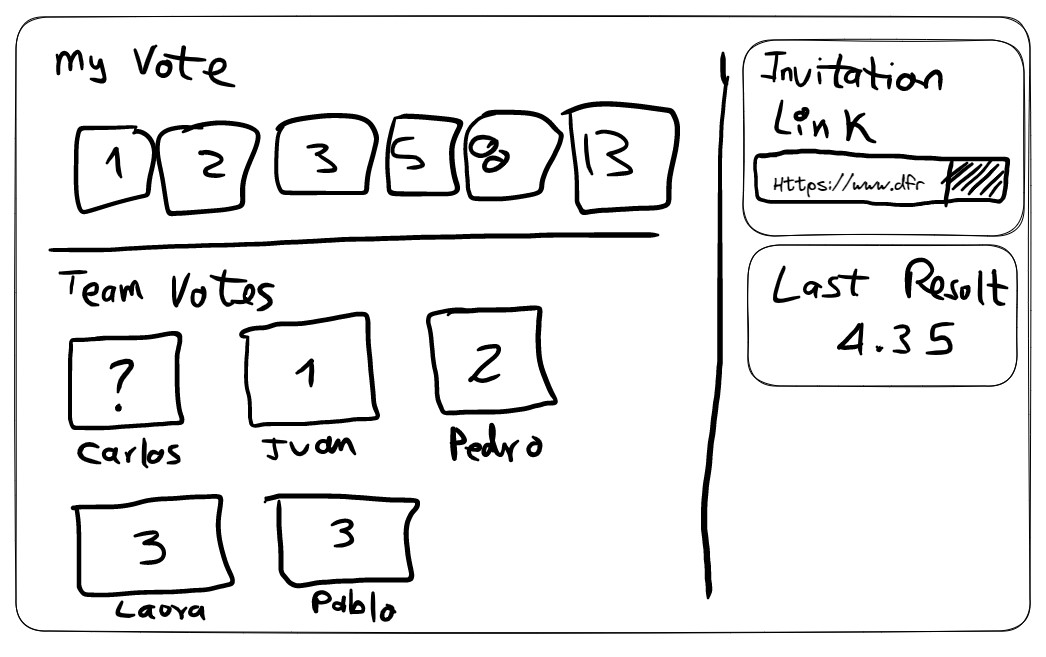 My Vote
1 2 3 5 8 13
Team Votes
? 1 2
Carlos Juan Pedro
3 3
Laura Pablo
Invitation
Link
Https://www.dfr
Last Result
4.35